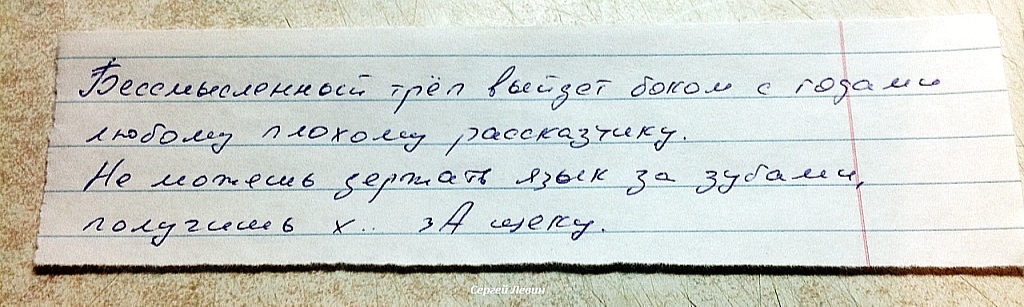 Бессмысленный трёп выйдет боком с годами
любому плохому рассказчику.
Не можешь держать язык за зубами,
получишь х.. зА щеку.
Сергей Левин